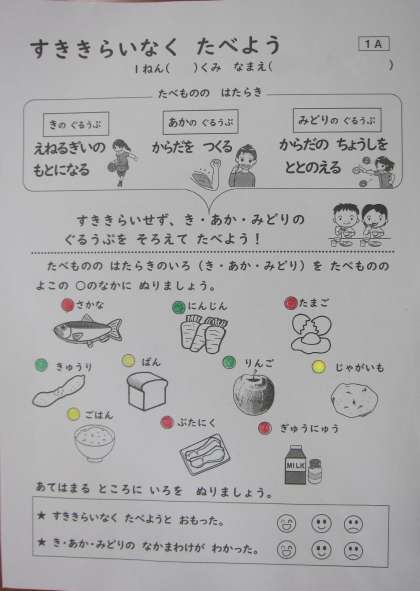 すききらいなく たべよう
1A
1ねん( )くみ なまえ( )
たべものの はたらき
きの ぐるうぷ
あかの ぐるうぷ
みどりの ぐるうぷ
えねるぎいの
もとになる
からだを つくる
からだの ちょうしを
ととのえる
すききらいせず、き・あか・みどりの
ぐるうぷを そろえて たべよう！
たべものの はたらきのいろ（き・あか・みどり）を たべものの
よこの ○のなかに ぬりましょう。
さかな
にんじん
たまご
きゅうり
ぱん
りんご
じゃがいも
ごはん
ぶたにく
ぎゅうにゅう
MILK
あてはまる ところに いろを ぬりましょう。
★ すききらいなく たべようと おもった。
★ き・あか・みどりの なかまわけが わかった。